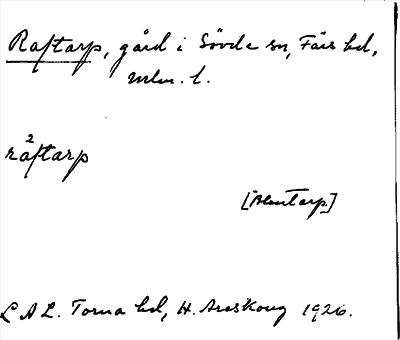 Raftarp, gård i Sövde sn, Färs hd,
mlm. l.
ra²ftarp
[Alentarp]
LAL. Torna hd, H. Areskoug 1926.